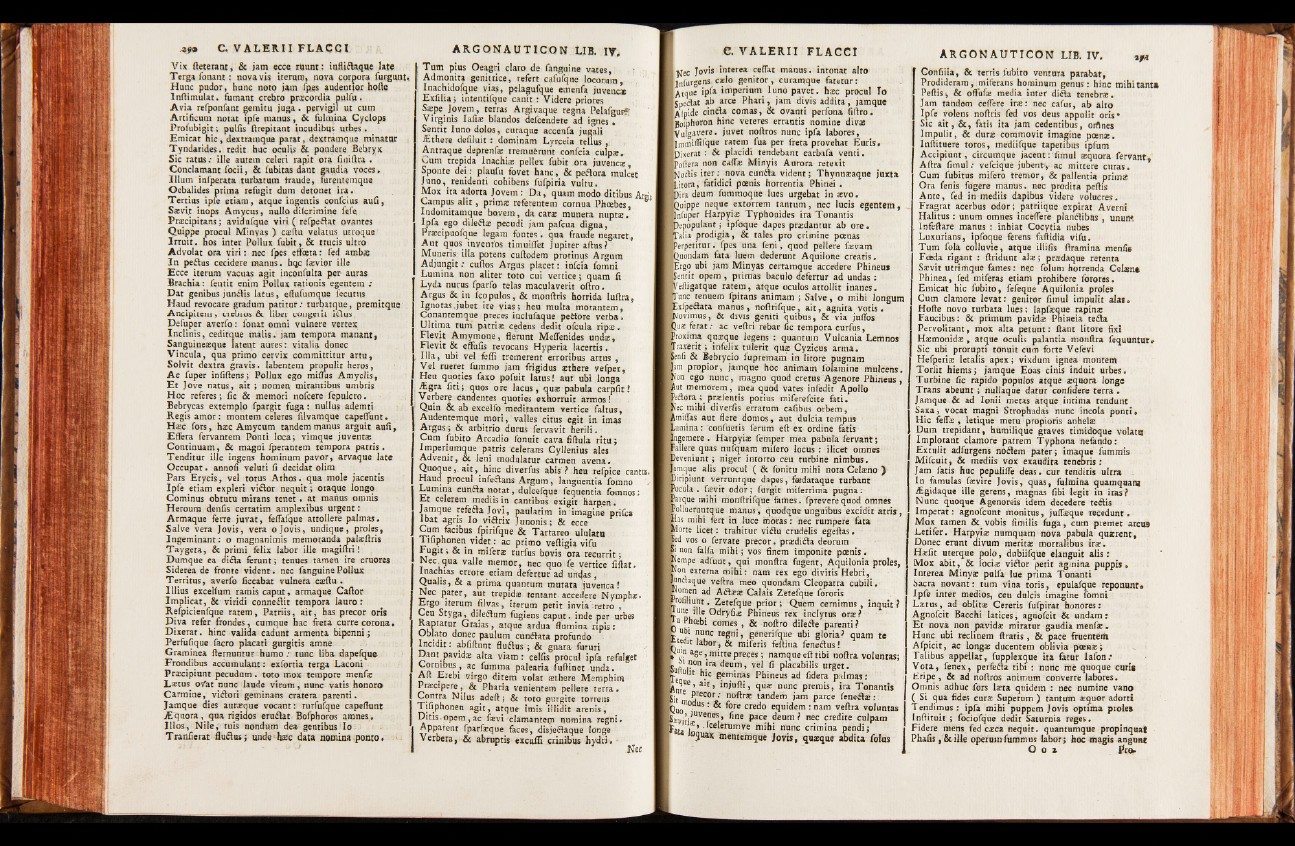 290 C. VALERII FLACCI
Vix ſteterant, & jam ecce ruunt: inflictaque late
Terga ſonant: nova vis iterum, nova corpora ſurgunt.
Hunc pudor, hunc noto jam ſpes audentior hoſte
Inſtimulat. fumant crebro præcordia pulſu.
Avia reſponſant gemitu juga. pervigil ut cum
Artificum notat ipſe manus, & fulmina Cyclops
Proſubigit; pulſis ſtrepitant incudibus urbes.
Emicat hic, dextramque parat, dextramque minatur
Tyndarides. redit huc oculis & pondere Bebryx
Sic ratus: ille autem celeri rapit ora ſiniſtra.
Conclamant ſocii, & ſubitas dant gaudia voces.
Illum inſperata turbatum fraude, furentemque
Oebalides prima refugit dum detonet ira.
Tertius ipſe etiam, atque ingentis conſcius auſi,
Sævit inops Amycus, nullo diſcrimine ſeſe
Præcipitans; avidaſque viri (reſpectat ovantes
Quippe procul Minyas) cæſtu velatus urroque
Irruit. hos inter Pollux ſubit, & trucis ultro
Advolat ora viri: nec ſpes effœta: ſed ambæ
In pectus cecidere manus. hoc ſævior ille
Ecce iterum vacuas agit inconſulta per auras
Brachia: ſentit enim Pollux rationis egentem:
Dat genibus junctis latus, effuſumque ſecutus
Haud revocare gradum patitur: turbatque, premitque
Ancipitem, crebros & liber congerit ictus
Deſuper averſo: ſonat omni vulnere vertex
Inclinis, ceditque malis. jam tempora manant,
Sanguineæque latent aures: vitalia donec
Vincula, qua primo cervix committitur artu,
Solvit dextra gravis. labentem propulit heros,
Ac ſuper inſiſtens; Pollux ego miſſus Amyclis,
Et Jove natus, ait; nomen mirantibus umbris
Hoc referes; ſic & memori noſcere ſepulcro.
Bebrycas extemplo ſpargit fuga: nullus ademti
Regis amor: montem celeres ſilvamque capeſſunt.
Hæc ſors, hæc Amycum tandem manus arguit auſi,
Effera ſervantem Ponti loca; vimque juventæ
Continuam, & magni ſperantem tempora patris.
Tenditur ille ingens hominum pavor, arvaque late
Occupat. annoſi veluti ſi decidat olim
Pars Erycis, vel totus Athos. qua mole jacentis
Ipſe etiam expleri victor nequit; oraque longo
Cominus obtutu mirans tenet. at manus omnis
Heroum denſis certatim amplexibus urgent:
Armaque ferre juvat, feſſaſque attollere palmas.
Salve vera Jovis, vera o Jovis, undique, proles,
Ingeminant: o magnanimis memoranda palæſtris
Taygeta, & primi felix labor ille magiſtri!
Dumque ea dicta ferunt; tenues tamen ire cruores
Siderea de fronte vident. nec ſanguine Pollux
Territus, averſo ſiccabat vulnera cæſtu.
Illius excelſum ramis caput, armaque Caſtor
Implicat, & viridi connectit tempora lauro:
Reſpicienſque ratem, Patriis, ait, has precor oris
Diva refer frondes, cumque hac freta curre corona.
Dixerat. hinc valida cadunt armenta bipenni;
Perfuſique ſacro placari gurgitis amne
Graminea ſternuntur humo: tunc liba dapeſque
Frondibus accumulant: exſortia terga Laconi
Præcipiunt pecudum. toto mox tempore menſæ
Lætus ovat nunc laude virum, nunc vatis honoro
Carmine, victori geminans cratera parenti.
Jamque dies auræque vocant: rurſuſque capeſſunt
Æquora, qua rigidos eructat Boſphoros amnes.
Illos, Nile, tuis nondum dea gentibus Io
Tranſierat fluctus; unde hæc data nomina ponto.
ARGONAUTICON LIB. IV.
Tum pius Oeagri claro de ſanguine vates,
Admonita genitrice, refert caſuſque locorum,
Inachidoſque vias, pelaguſque emenſa juvencæ
Exſilia; intentiſque canit: Videre priores
Sæpe Jovem, terras Argivaque regna Pelaſgum
Virginis Iaſiæ blandos deſcendere ad ignes.
Sentit Iuno dolos, curaque accenſa jugali
Æthere deſiluit: dominam Lyrceia tellus,
Antraque deprenſæ tremuerunt conſcia culpæ.
Cum trepida Inachiæ pellex ſubit ora juvencæ,
Sponte dei: plauſu fovet hanc, & pectora mulcet
Juno, renidenti cohibens ſuſpiria vultu.
Mox ita adorta Jovem: Da, quam modo ditibus Argis
Campus alit, primæ referentem cornua Phœbes,
Indomitamque bovem, da caræ munera nuptæ.
Ipſa ego dilectæ pecudi jam paſcua digna,
Præcipuoſque legam fontes. qua fraude negaret,
Aut quos inventos timuiſſet Jupiter aſtus?
Muneris illa potens cuſtodem protinus Argum
Adjungit: cuſtos Argus placet: inſcia ſomni
Lumina non aliter toto cui vertice; quam ſi
Lyda nurus ſparſo telas maculaverit oſtro.
Argus & in ſcopulos, & monſtris horrida luſtra,
Ignotas jubet ire vias; heu multa morantem,
Conantemque preces incluſaque pectore verba.
Ultima tum patriæ cedens dedit oſcula ripæ.
Flevit Amymone, flerunt Meſſenides undæ,
Flevit & effuſis revocans Hyperia lacertis.
Illa, ubi vel feſſi tremerent erroribus artus,
Vel rueret ſummo jam frigidus æthere veſper,
Heu quoties ſaxo poſuit latus! aut ubi longa
Ægra ſiti; quos ore lacus, quæ pabula carpſit!
Verbere candentes quoties exhorruit armos!
Quin & ab excelſo meditantem vertice ſaltus,
Audentemque mori, valles citus egit in imas
Argus; & arbitrio durus ſervavit herili.
Cum ſubito Arcadio ſonuit cava fiſtula ritu;
Imperiumque patris celerans Cyllenius ales
Advenit, & leni modulatur carmen avena.
Quoque, ait, hinc diverſus abis? heu reſpice cantus.
Haud procul inſectans Argum, languentia ſomno
Lumina cuncta notat, dulceſque ſequentia ſomnos:
Et celerem mediis in cantibus exigit harpen.
Jamque refecta Jovi, paulatim in imagine priſca
Ibat agris Io victrix Junonis; & ecce
Cum facibus ſpiriſque & Tartareo ululatu
Tiſiphonen videt: ac primo veſtigia viſu
Fugit. & in miſeræ rurſus bovis ora recurrit;
Nec qua valle memor, nec quo ſe vertice ſiſtat.
Inachias errore etiam defertur ad undas,
Qualis, & a prima quantum mutata juvenca!
Nec pater, aut trepidæ tentant accedere Nymphæ.
Ergo iterum ſilvas, iterum petit invia retro,
Ceu Styga, dilectum fugiens caput. inde per urbes
Raptatur Graias, atque ardua flumina ripis:
Oblato donec paulum cunctata profundo
Incidit: abſiſtunt fluctus; & gnara futuri
Dant pavidæ alta viam: celſis procul ipſa refulget
Cornibus, ac ſumma palearia ſuſtinet unda.
Aſt Erebi virgo ditem volat æthere Memphim
Præcipere, & Pharia venientem pellere terra.
Contra Nilus adeſt; & toto gurgite torrens
Tiſiphonen agit, atque imis illidit arenis,
Ditis opem, ac ſævi clamantem numina regni.
Apparent ſparſæque faces, disjectaque longe
Verbera, & abruptis excuſſi crinibus hydri.
Nec
C. VALERII FLACCI
Nec Jovis interea ceſſat manus. intonat alto
Inſurgens cælo genitor, curamque fatetur:
Atque ipſa imperium Iuno pavet. hæc procul Io
Spectat ab arce Phari, jam divis addita, jamque
Aſpide cincta comas, & ovanti perſona ſiſtro.
Boſphoron hinc veteres errantis nomine divæ
Vulgavere. juvet noſtros nunc ipſa labores,
Immiſſiſque ratem ſua per freta provehat Euris.
Dixerat: & placidi tendebant carbaſa venti.
Poſtera non caſſæ Minyis Aurora retexit
Noctis iter: nova cuncta vident; Thynnæaque juxta
Litora, fatidici pœnis horrentia Phinei.
Dira deum ſommoque lues urgebat in ævo.
Quippe neque extorrem tantum, nec lucis egentem,
Inſuper Harpyiæ Typhonides ira Tonantis
Depopulant; ipſoque dapes prædantur ab ore.
Talia prodigia, & tales pro crimine pœnas
Perpetitur. ſpes una ſeni, quod pellere ſævam
Quondam fata luem dederunt Aquilone creatis.
Ergo ubi jam Minyas certamque accedere Phineus
Sentit opem, primas baculo defertur ad undas:
Veſtigatque ratem, atque oculos attollit inanes.
Tunc tenuem ſpirans animam; Salve, o mihi longum
Exſpectata manus, noſtriſque, ait, agnita votis.
Novimus, & divis geniti quibus, & via juſſos
Quæ ferat: ac veſtri rebar ſic tempora curſus,
Proxima quæque legens: quantum Vulcania Lemnos
Traxerit; infelix tulerit quæ Cyzicus arma.
Senſi & Bebrycio ſupremam in litore pugnam
Jam propior, jamque hoc animam ſolamine mulcens.
Non ego nunc, magno quod cretus Agenore Phineus,
Aut memorem, mea quod vates inſedit Apollo
Pectora; præſentis potius miſereſcite fati.
Nec mihi diverſis erratum caſibus orbem,
Amiſſas aut flere domos, aut dulcia tempus
Lumina: conſuetis ſerum eſt ex ordine fatis
Ingemere. Harpyiæ ſemper mea pabula ſervant;
Fallere quas nuſquam miſero locus: ilicet omnes
Deveniunt; niger intorto ceu turbine nimbus.
Jamque alis procul (& ſonitu mihi nota Celæno)
Diripiunt verruntque dapes, fœdataque turbant
Pocula. ſævit odor; ſurgit miſerrima pugna:
Parque mihi monſtriſque fames. ſprevere quod omnes
Polluerantque manus, quodque unguibus excidit atris,
Has mihi fert in luce moras: nec rumpere fata
Morte licet: trahitur victu crudelis egeſtas.
Sed vos o ſervate precor. prædicta deorum
Si non falſa mihi; vos finem imponite pœnis.
Nempe adſunt, qui monſtra fugent, Aquilonia proles,
Non externa mihi: nam rex ego divitis Hebri,
Junctaque veſtra meo quondam Cleopatra cubili.
Nomen ad Actææ Calais Zeteſque ſororis
Proſiliunt. Zeteſque prior; Quem cernimus, inquit?
Tune ille Odryſiæ Phineus rex inclytus oræ?
Tu Phœbi comes, & noſtro dilecte parenti?
O ubi nunc regni, generiſque ubi gloria? quam te
Exedit labor, & miſeris feſtina ſenectus!
Quin age, mitte preces; namque eſt tibi noſtra voluntas;
Si non ira deum, vel ſi placabilis urget.
Suſtulit hic geminas Phineus ad ſidera palmas;
Teque, ait, injuſti, quæ nunc premis, ira Tonantis
Ante precor: noſtræ tandem jam parce ſenectæ:
Sit modus: & fore credo equidem: nam veſtra voluntas
Quo, juvenes, ſine pace deum? nec credite culpam
Sævitiæ, ſcelerumve mihi nunc crimina pendi;
Fata loquax mentemque Jovis, quæque abdita ſolus
ARGONAUTICON LIB. IV. 291
Conſilia, & terris ſubito ventura parabat,
Prodideram, miſerans hominum genus: hinc mihi tanta
Peſtis, & offuſæ media inter dicta tenebræ.
Jam tandem ceſſere iræ: nec caſus, ab alto
Ipſe volens noſtris ſed vos deus appulit oris.
Sic ait, &, fatis ita jam cedentibus, omnes
Impulit, & duræ commovit imagine pœnæ.
Inſtituere toros, mediiſque tapetibus ipſum
Accipiunt, circumque jacent: ſimul æquora ſervant,
Aſtra ſimul: veſcique jubent, ac mittere curas.
Cum ſubitus miſero tremor, & pallentia primæ
Ora ſenis fugere manus. nec prodita peſtis
Ante, ſed in mediis dapibus videre volucres.
Fragrat acerbus odor; patriique exſpirat Averni
Halitus: unum omnes inceſſere planctibus, unum
Infeſtare manus: inhiat Cocytia nubes
Luxurians, ipſoque ferens faſtidia viſu.
Tum ſola colluvie, atque illiſis ſtramina menſis
Fœda rigant: ſtridunt alæ; prædaque retenta
Sævit utrimque fames: nec ſolum horrenda Celæno
Phinea, ſed miſeras etiam prohibere ſorores.
Emicat hic ſubito, ſeſeque Aquilonia proles
Cum clamore levat: genitor ſimul impulit alas.
Hoſte novo turbata lues: lapſæque rapinæ
Faucibus: & primum pavidæ Phineia tecta
Pervolitant, mox alta petunt: ſtant litore fixi
Hæmonidæ, atque oculis palantia monſtra ſequuntur.
Sic ubi prorupti tonuit cum forte Veſevi
Heſperiæ letalis apex; vixdum ignea montem
Torſit hiems; jamque Eoas cinis induit urbes.
Turbine ſic rapido populos atque æquora longe
Trans abeunt; nullaque datur conſidere terra.
Jamque & ad Ionii metas atque intima tendunt
Saxa, vocat magni Strophadas nunc incola ponti.
Hic feſſæ, letique metu propioris anhelæ
Dum trepidant, humilique graves timidoque volatu
Implorant clamore patrem Typhona nefando:
Extulit adſurgens noctem pater; imaque ſummis
Miſcuit, & mediis vox exaudita tenebris:
Jam ſatis huc pepuliſſe deas. cur tenditis ultra
In famulas ſævire Jovis, quas, fulmina quamquam
Ægidaque ille gerens, magnas ſibi legit in iras?
Nunc quoque Agenoreis idem decedere tectis
Imperat: agnoſcunt monitus, juſſæque recedunt.
Mox tamen & vobis ſimilis fuga, cum premet arcus
Letifer. Harpyiæ numquam nova pabula quærent,
Donec erunt divum meritæ mortalibus iræ.
Hæſit uterque polo, dubiiſque elanguit alis:
Mox abit, & ſociæ victor petit agmina puppis.
Interea Minyæ pulſa lue prima Tonanti
Sacra novant: tum vina toris, epulaſque reponunt.
Ipſe inter medios, ceu dulcis imagine ſomni
Lætus, ad oblitæ Cereris ſuſpirat honores:
Agnoſcit Bacchi latices; agnoſcit & undam:
Et nova non pavidæ miratur gaudia menſæ.
Hunc ubi reclinem ſtratis, & pace fruentem
Aſpicit, ac longæ ducentem oblivia pœnæ;
Talibus appellat, ſupplexque ita fatur Iaſon:
Vota, ſenex, perfecta tibi: nunc me quoque curis
Eripe, & ad noſtros animum converte labores.
Omnis adhuc ſors læta quidem: nec numine vano
(Si qua fides curæ Superum) tantum æquor adorti
Tendimus: ipſa mihi puppem Jovis optima proles
Inſtituit; ſocioſque dedit Saturnia reges.
Fidere mens ſed cæca nequit. quantumque propinquat
Phaſis, & ille operum ſummus labor; hoc magis angunt
O o 2 Pro-